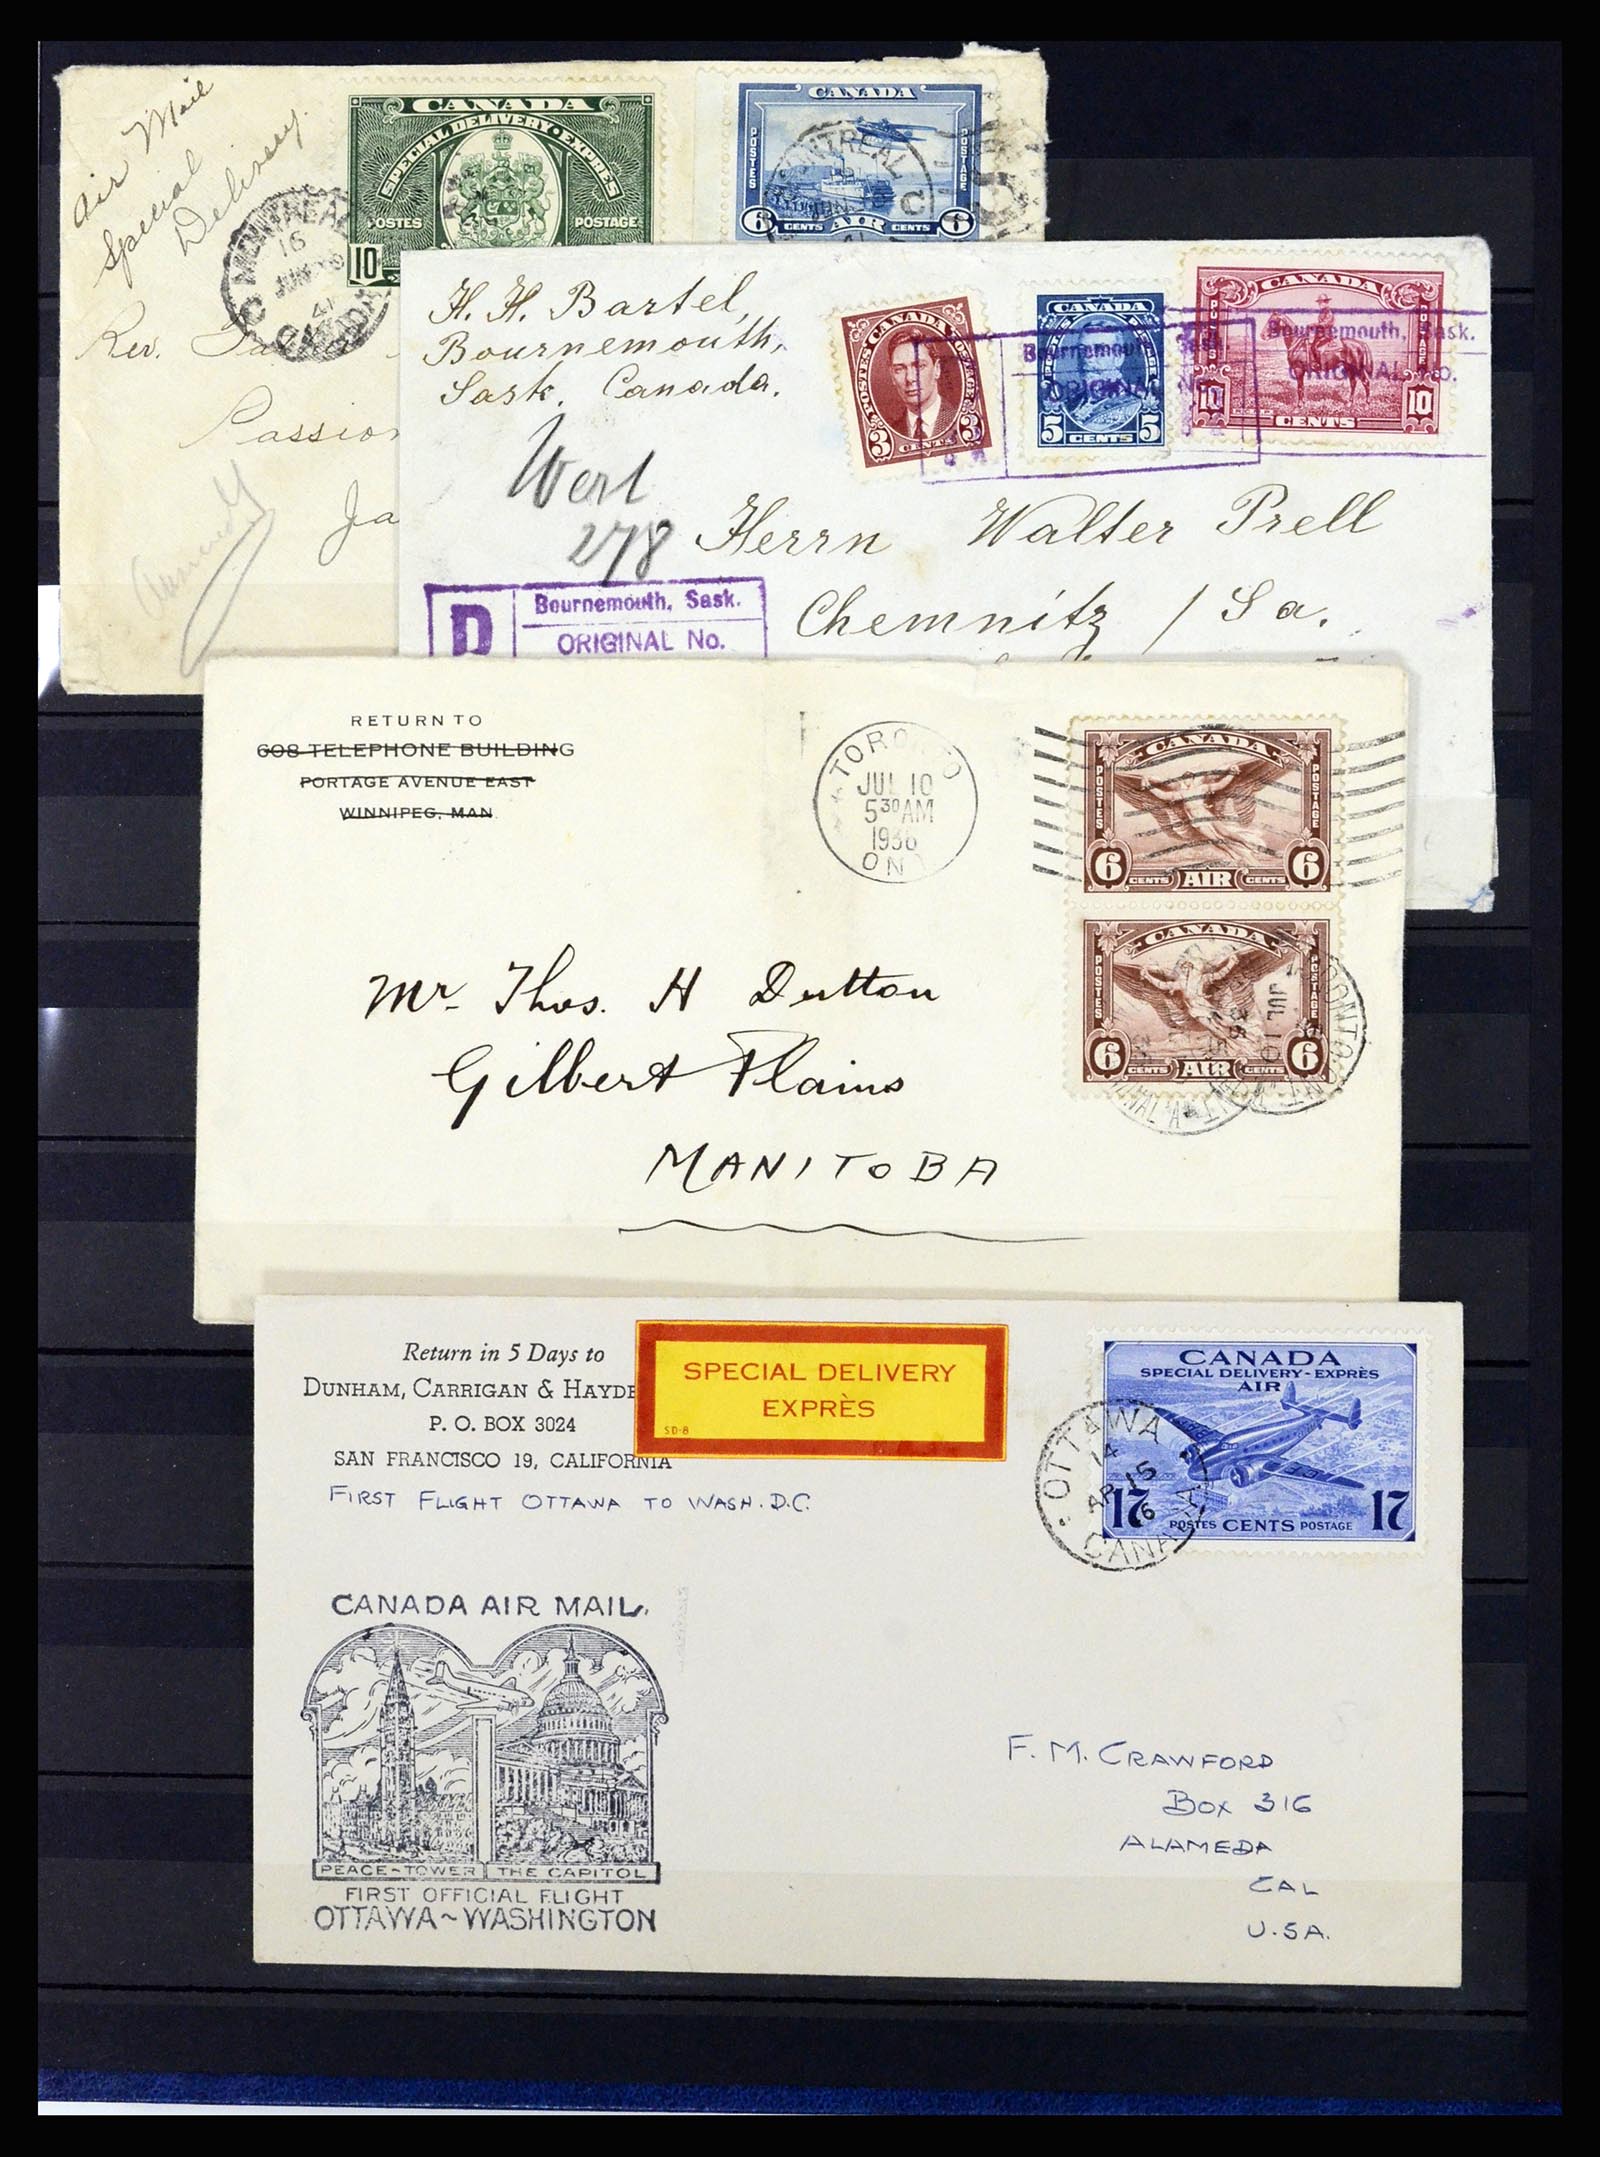 Air Mail
Special
Delivery.
MONTREAL
16
JUN
41
CANADA
CANADA
SPECIAL DELIVERY·EXPRES
POSTES POSTAGE
10
CANADA
POSTES POSTAGE
6 CENTS AIR CENTS 6
MONTREAL
C
Rev.
Passion
Ja
H. H. Bartel,
Bournemouth,
Sask. Canada.
Wert
278
POSTES CANADA POSTAGE
3 CENTS 3
CANADA
5 CENTS 5
CANADA
POSTES POSTAGE
10 CENTS 10
Bournemouth, Sask.
ORIGINAL No.
Bournemouth, Sask.
ORIGINAL No.
Herrn Walter Prell
Chemnitz / Sa.
R
Bournemouth, Sask.
ORIGINAL No.
RETURN TO
608 TELEPHONE BUILDING
PORTAGE AVENUE EAST
WINNIPEG, MAN.
TORONTO
JUL 10
5 30 AM
1936
ONT
CANADA
POSTES POSTAGE
6 CENTS AIR CENTS 6
CANADA
POSTES POSTAGE
6 CENTS AIR CENTS 6
TORONTO
JUL 10
Mr. Thos. H Dutton
Gilbert Plains
MANITOBA
Return in 5 Days to
DUNHAM, CARRIGAN & HAYDE
P. O. BOX 3024
SAN FRANCISCO 19, CALIFORNIA
SPECIAL DELIVERY
EXPRÈS
SD-8
FIRST FLIGHT OTTAWA TO WASH. D.C.
CANADA
SPECIAL DELIVERY-EXPRÈS
AIR
17 POSTES CENTS POSTAGE 17
OTTAWA
14
AP 15
6
CANADA
CANADA AIR MAIL.
PEACE-TOWER THE CAPITOL
FIRST OFFICIAL FLIGHT
OTTAWA~WASHINGTON
F. M. CRAWFORD
BOX 316
ALAMEDA
CAL
U.S.A.